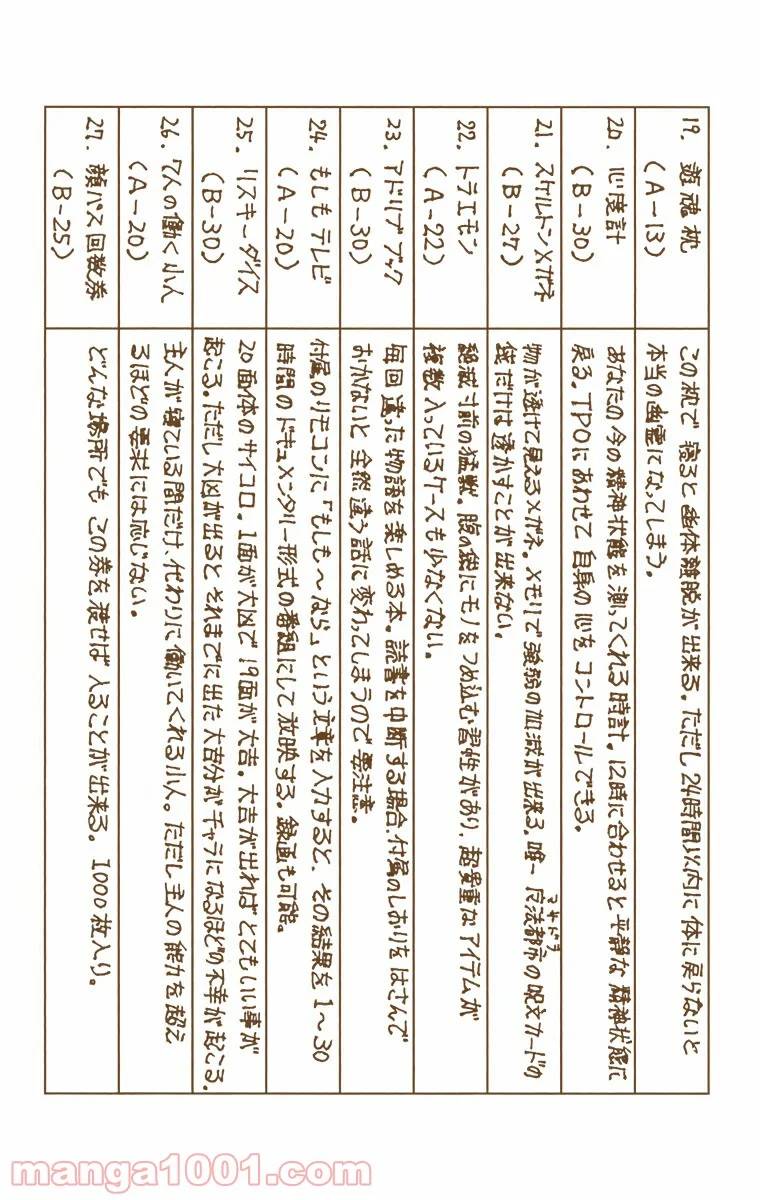 19. 遊魂枕
(A-13)
この枕で寝ると幽体離脱が出来る。ただし24時間以内に体に戻らないと
本当の幽霊になってしまう。
20. 心度計
(B-30)
あなたの今の精神状態を測ってくれる時計。12時に合わせると平静な精神状態に
戻る。TPOにあわせて自身の心をコントロールできる。
21. スケルトンメガネ
(B-27)
物が透けて見えるメガネ。メモリで強弱の加減が出来る。唯一魔法都市の呪文カードの
マサドラ
袋だけは透かすことが出来ない。
22. トラエモン
(A-22)
絶滅寸前の猛獣。腹の袋にモノをつめ込む習性があり、超貴重なアイテムが
複数入っているケースも少なくない。
23. アドリブブック
(B-30)
毎回違った物語を楽しめる本。読書を中断する場合、付属のしおりをはさんで
おかないと全然違う話に変わってしまうので要注意。
24. もしもテレビ
(A-20)
付属のリモコンに「もしも〜なら」という文章を入力すると、その結果を1〜30
時間のドキュメンタリー形式の番組にして放映する。録画も可能。
25. リスキーダイス
(B-30)
20面体のサイコロ。1面が大凶で19面が大吉。大吉が出ればとてもいい事が
起こる。ただし大凶が出るとそれまでに出た大吉分がチャラになるほどの不幸が起こる。
26. 7人の働く小人
(A-20)
主人が寝ている間だけ、代わりに働いてくれる小人。ただし主人の能力を超え
るほどの要求には応じない。
27. 顔パス回数券
(B-25)
どんな場所でもこの券を渡せば入ることが出来る。1000枚入り。
manga1001.com